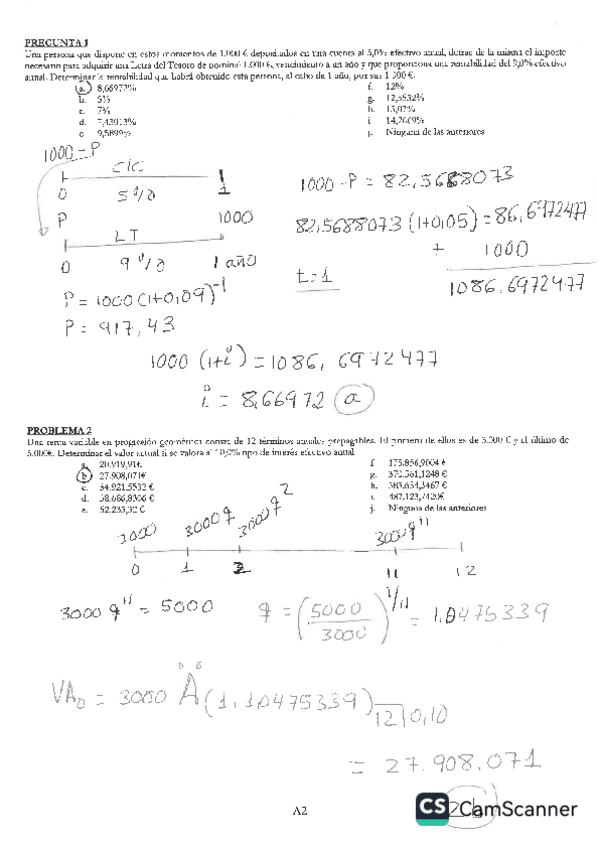 PREGUNTA 1
Una persona que dispone en estos momentos de 1.000 € depositados en una cuenta al 5,0% efectivo anual, detrae de la misma el importe
necesario para adquirir una Letra del Tesoro de nominal 1.000 €, vencimiento a un año y que proporciona una rentabilidad del 9,0% efectivo
anual. Determinar la rentabilidad que habrá obtenido esta persona, al cabo de 1 año, por sus 1.000 €.
a. 8,66972%
b. 5%
c. 7%
d. 7,43013%
e. 9,5899%
f. 12%
g. 12,5832%
h. 13,02%
i. 14,2669%
j. Ninguna de las anteriores
1000 - P
c/c
0 5% 1
P 1000
LT
0 9% 1 año
P = 1000 (1+0,09)^-1
P = 917,43
1000 - P = 82,5688073
82,5688073 (1+0,05) = 86,6972477
+ 1000
t=1
1086,6972477
1000 (1+i) = 1086,6972477
i = 8,66972 (a)
PROBLEMA 2
Una renta variable en progresión geométrica consta de 12 términos anuales prepagables. El primero de ellos es de 3.000 € y el último de
5.000€. Determinar el valor actual si se valora al tipo de interés efectivo anual
a. 20.919,91€
b. 27.908,071€
c. 34.921,5532 €
d. 38.686,8306 €
e. 52.235,32 €
f. 175.856,9004 €
g. 371.561,1248 €
h. 383.654,3467 €
i. 487.123,7420€
j. Ninguna de las anteriores
3000 3000q 3000q² 3000q¹¹
0 1 2 11 12
3000 q¹¹ = 5000
q = (5000/3000)^1/11 = 1,0475339
VA₀ = 3000 Ä(1, 1,0475339) 12| 0,10
= 27.908,071
A2
CS CamScanner